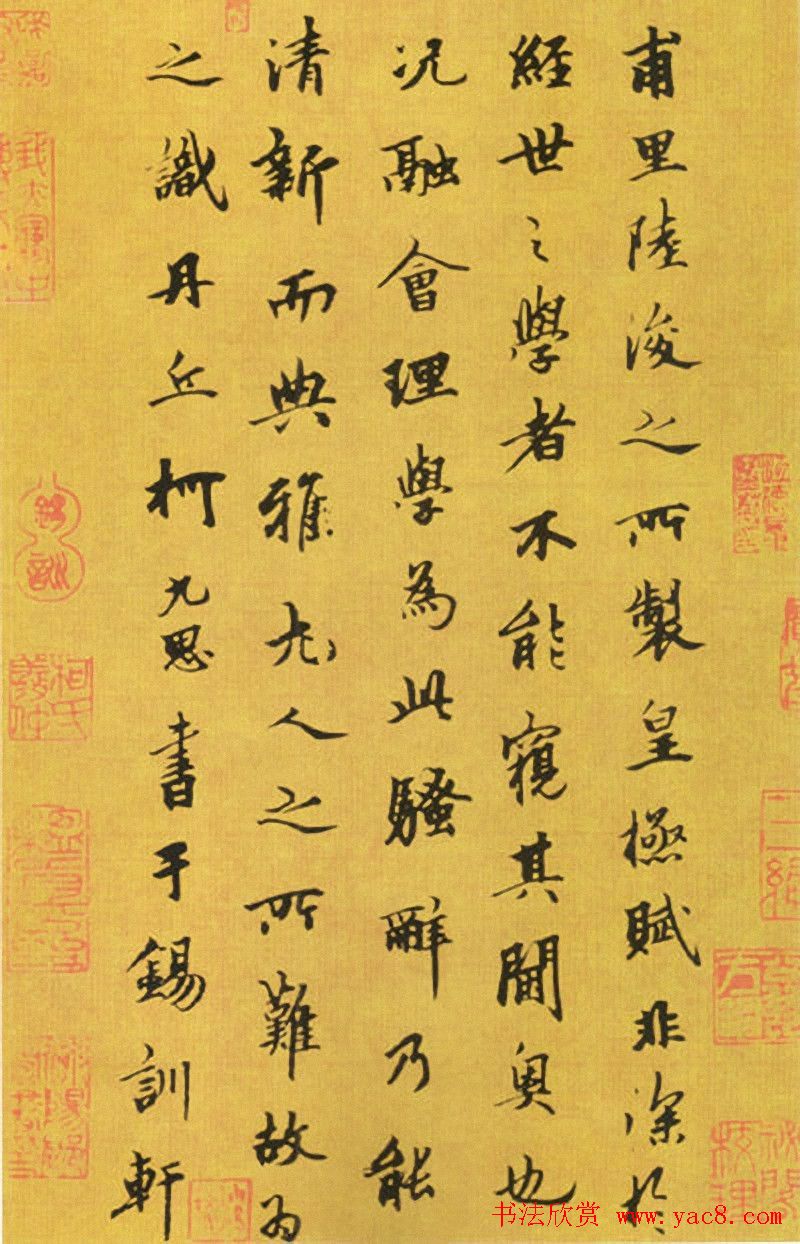 甫里陸浚之所製皇極賦非深於
經世之學者不能窺其閫奧也
况融會理學為此騷辭乃能
清新而典雅尤人之所難故為
之識丹丘柯九思書于錫訓軒
錫訓
柯氏敬仲
书法欣赏 www.yac8.com